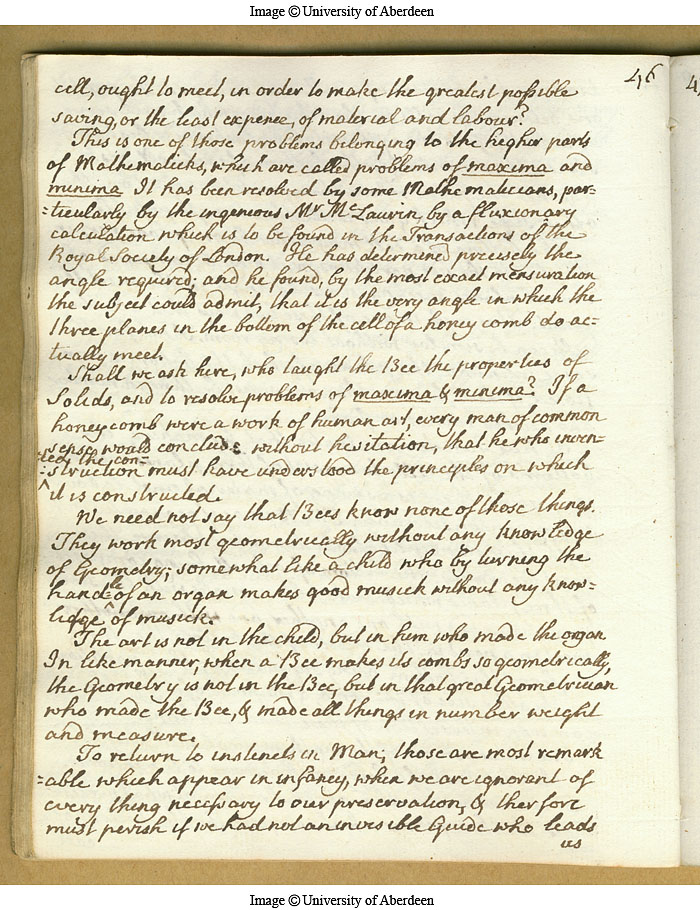 Image © University of Aberdeen
46
cell, ought to meet, in order to make the greatest possible
saving, or the least expence, of material and labour?
This is one of those problems belonging to the higher parts
of Mathematicks, which are called problems of maxima and
minima. It has been resolved by some Mathematicians, par=
=ticularly by the ingenious Mr McLaurin, by a fluxionary
calculation which is to be found in the Transactions of the
Royal Society of London. He has determined precisely the
angle required; and he found, by the most exact mensuration
the subject could admit, that it is the very angle in which the
three planes in the bottom of the cell of a honey comb do ac=
=tually meet.
Shall we ask here, who taught the Bee the properties of
Solids, and to resolve problems of maxima & minima? If a
honey comb were a work of human art, every man of common
sense would conclude without hesitation, that he who inven=
=ted the con=
=struction must have understood the principles on which
it is constructed.
We need not say that Bees know none of those things.
They work most geometrically without any knowledge
of Geometry; somewhat like a child who by turning the
handle of an organ makes good musick without any know=
ledge of musick.
The art is not in the child, but in him who made the organ
In like manner, when a Bee makes its combs so geometrically,
the Geometry is not in the Bee, but in that great Geometrician
who made the Bee, & made all things in number weight
and measure.
To return to instincts in Man; those are most remark
=able which appear in infancy, when we are ignorant of
every thing necessary to our preservation, & therfore
must perish if we had not an invisible Guide who leads
us
Image © University of Aberdeen